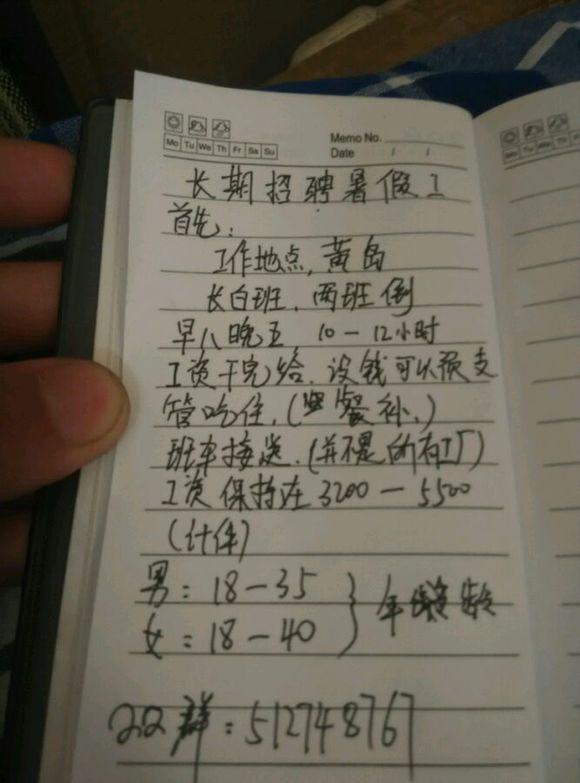 Mo Tu We Th Fr Sa Su
Memo No.
Date / /
长期招聘暑假工
首先：
工作地点，黄岛
长白班，两班倒
早八晚五 10－12小时
工资干完给，没钱可以预支
管吃住，（餐补，）
班车接送．（并不是所有工厂）
工资保持在3200－5500
（计件）
男：18－35
女：18－40
年龄
QQ群：512748767
Mo Tu We Th